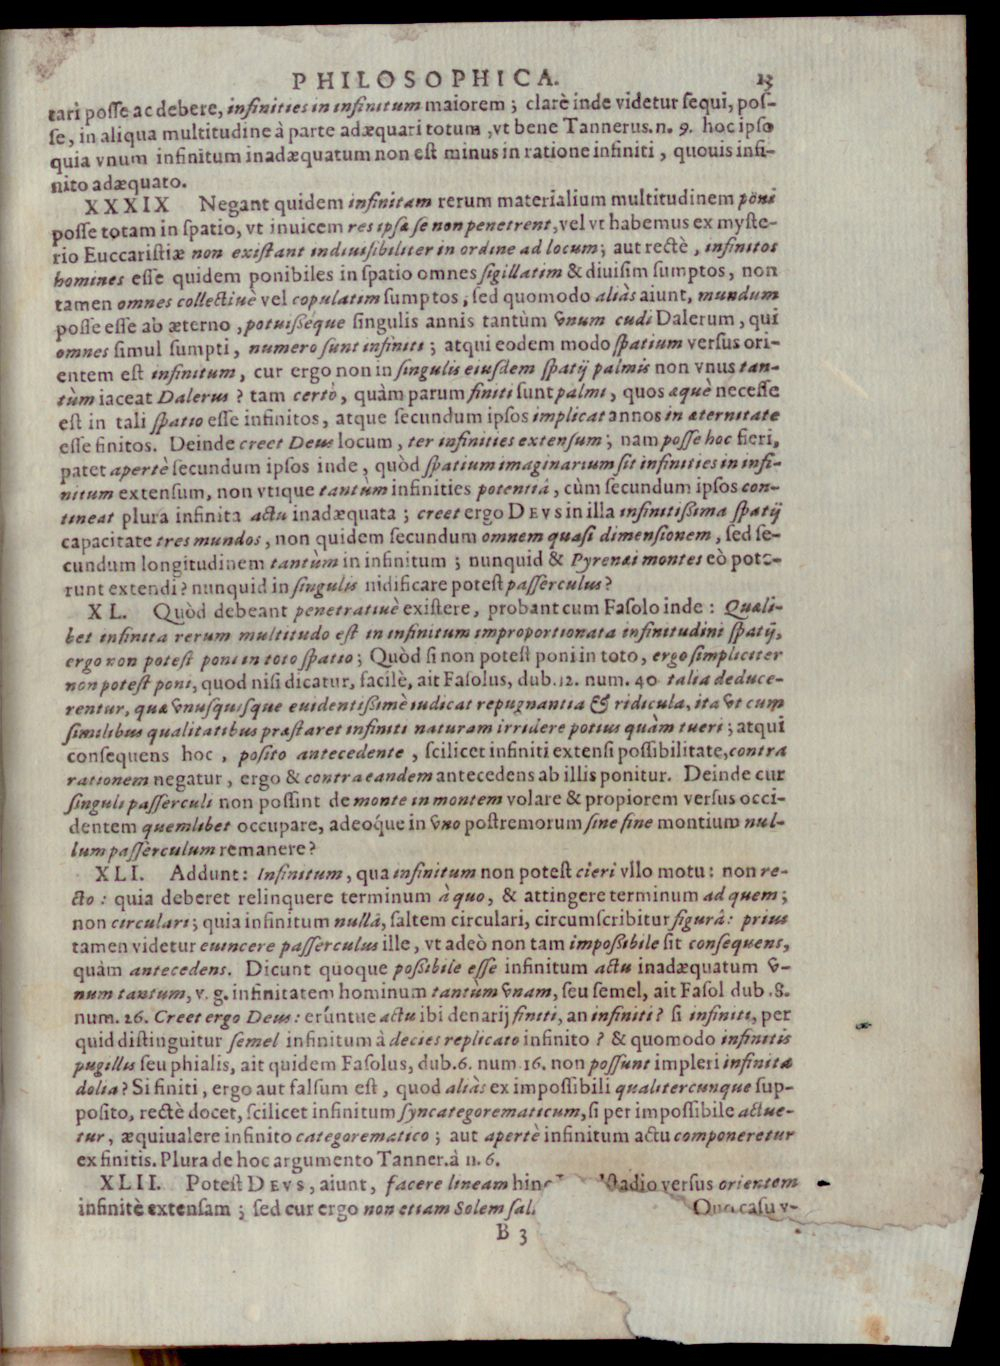 PHILOSOPHICA. 13
tari posse ac debere, infinities in infinitum maiorem ; clarè inde videtur sequi, pos-
se, in aliqua multitudine à parte adæquari totum ,vt bene Tannerus.n. 9. hoc ipso
quia vnum infinitum inadæquatum non est minus in ratione infiniti , quouis infi-
nito adæquato.
XXXIX Negant quidem infinitam rerum materialium multitudinem poni
posse totam in spatio, vt inuicem res ipsæ se non penetrent, vel vt habemus ex myste-
rio Euccaristiæ non existant indiuisibiliter in ordine ad locum; aut rectè , infinitos
homines esse quidem ponibiles in spatio omnes sigillatim & diuisim sumptos , non
tamen omnes collectiuè vel copulatim sumptos ; sed quomodo aliàs aiunt, mundum
posse esse ab æterno ,potuisséque singulis annis tantùm vnum cudi Dalerum , qui
omnes simul sumpti , numero sunt infiniti ; atqui eodem modo spatium versus ori-
entem est infinitum , cur ergo non in singulis eiusdem spatij palmis non vnus tan-
tùm iaceat Dalerus ? tam certò , quàm parum finiti sunt palmi , quos æquè necesse
est in tali spatio esse infinitos, atque secundum ipsos implicat annos in æternitate
esse finitos. Deinde creet Deus locum , ter infinities extensum ; nam posse hoc fieri,
patet apertè secundum ipsos inde , quòd spatium imaginarium sit infinities in infi-
nitum extensum, non vtique tantùm infinities potentiâ , cùm secundum ipsos con-
tineat plura infinita actu inadæquata ; creet ergo DEVS in illa infinitißima spatij
capacitate tres mundos , non quidem secundum omnem quasi dimensionem , sed se-
cundum longitudinem tantùm in infinitum ; nunquid & Pyrenæi montes eò pote-
runt extendi ? nunquid in singulis nidificare potest passerculus ?
XL. Quòd debeant penetratiuè existere, probant cum Fasolo inde : Quæli-
bet infinita rerum multitudo est in infinitum improportionata infinitudini spatij,
ergo non potest poni in toto spatio ; Quòd si non potest poni in toto, ergo simpliciter
non potest poni, quod nisi dicatur, facilè, ait Fasolus, dub.12. num. 40 talia deduce-
rentur, quæ vnusquisque euidentißimè iudicat repugnantia & ridicula, ita vt cum
similibus qualitatibus præstaret infiniti naturam irridere potius quàm tueri ; atqui
consequens hoc , posito antecedente , scilicet infiniti extensi possibilitate,contra
rationem negatur , ergo & contra eandem antecedens ab illis ponitur. Deinde cur
singuli passerculi non possint de monte in montem volare & propiorem versus occi-
dentem quemlibet occupare, adeoq́ue in vno postremorum sine fine montium nul-
lum passerculum remanere ?
XLI. Addunt: Infinitum , qua infinitum non potest cieri vllo motu : non re-
cto : quia deberet relinquere terminum à quo , & attingere terminum ad quem ;
non circulari ; quia infinitum nullâ, saltem circulari, circumscribitur figurâ: prius
tamen videtur euincere passerculus ille , vt adeò non tam impoßibile sit consequens,
quàm antecedens. Dicunt quoque poßibile esse infinitum actu inadæquatum v-
num tantum, v. g. infinitatem hominum tantùm vnam, seu semel, ait Fasol dub .8.
num. 26. Creet ergo Deus : erúntue actu ibi denarij finiti, an infiniti ? si infiniti, per
quid distinguitur semel infinitum à decies replicato infinito ? & quomodo infinitis
pugillis seu phialis, ait quidem Fasolus, dub.6. num.16. non possunt impleri infinita
dolia ? Si finiti, ergo aut falsum est , quod aliàs ex impossibili qualitercunque sup-
posito, rectè docet, scilicet infinitum syncategorematicum, si per impossibile actue-
tur , æquiualere infinito categorematico ; aut apertè infinitum actu componeretur
ex finitis. Plura de hoc argumento Tanner.à n. 6.
XLII. Potest DEVS, aiunt, facere lineam hinc stadio versus orientem
infinitè extensam ; sed cur ergo non etiam Solem Quo casu v-
B 3